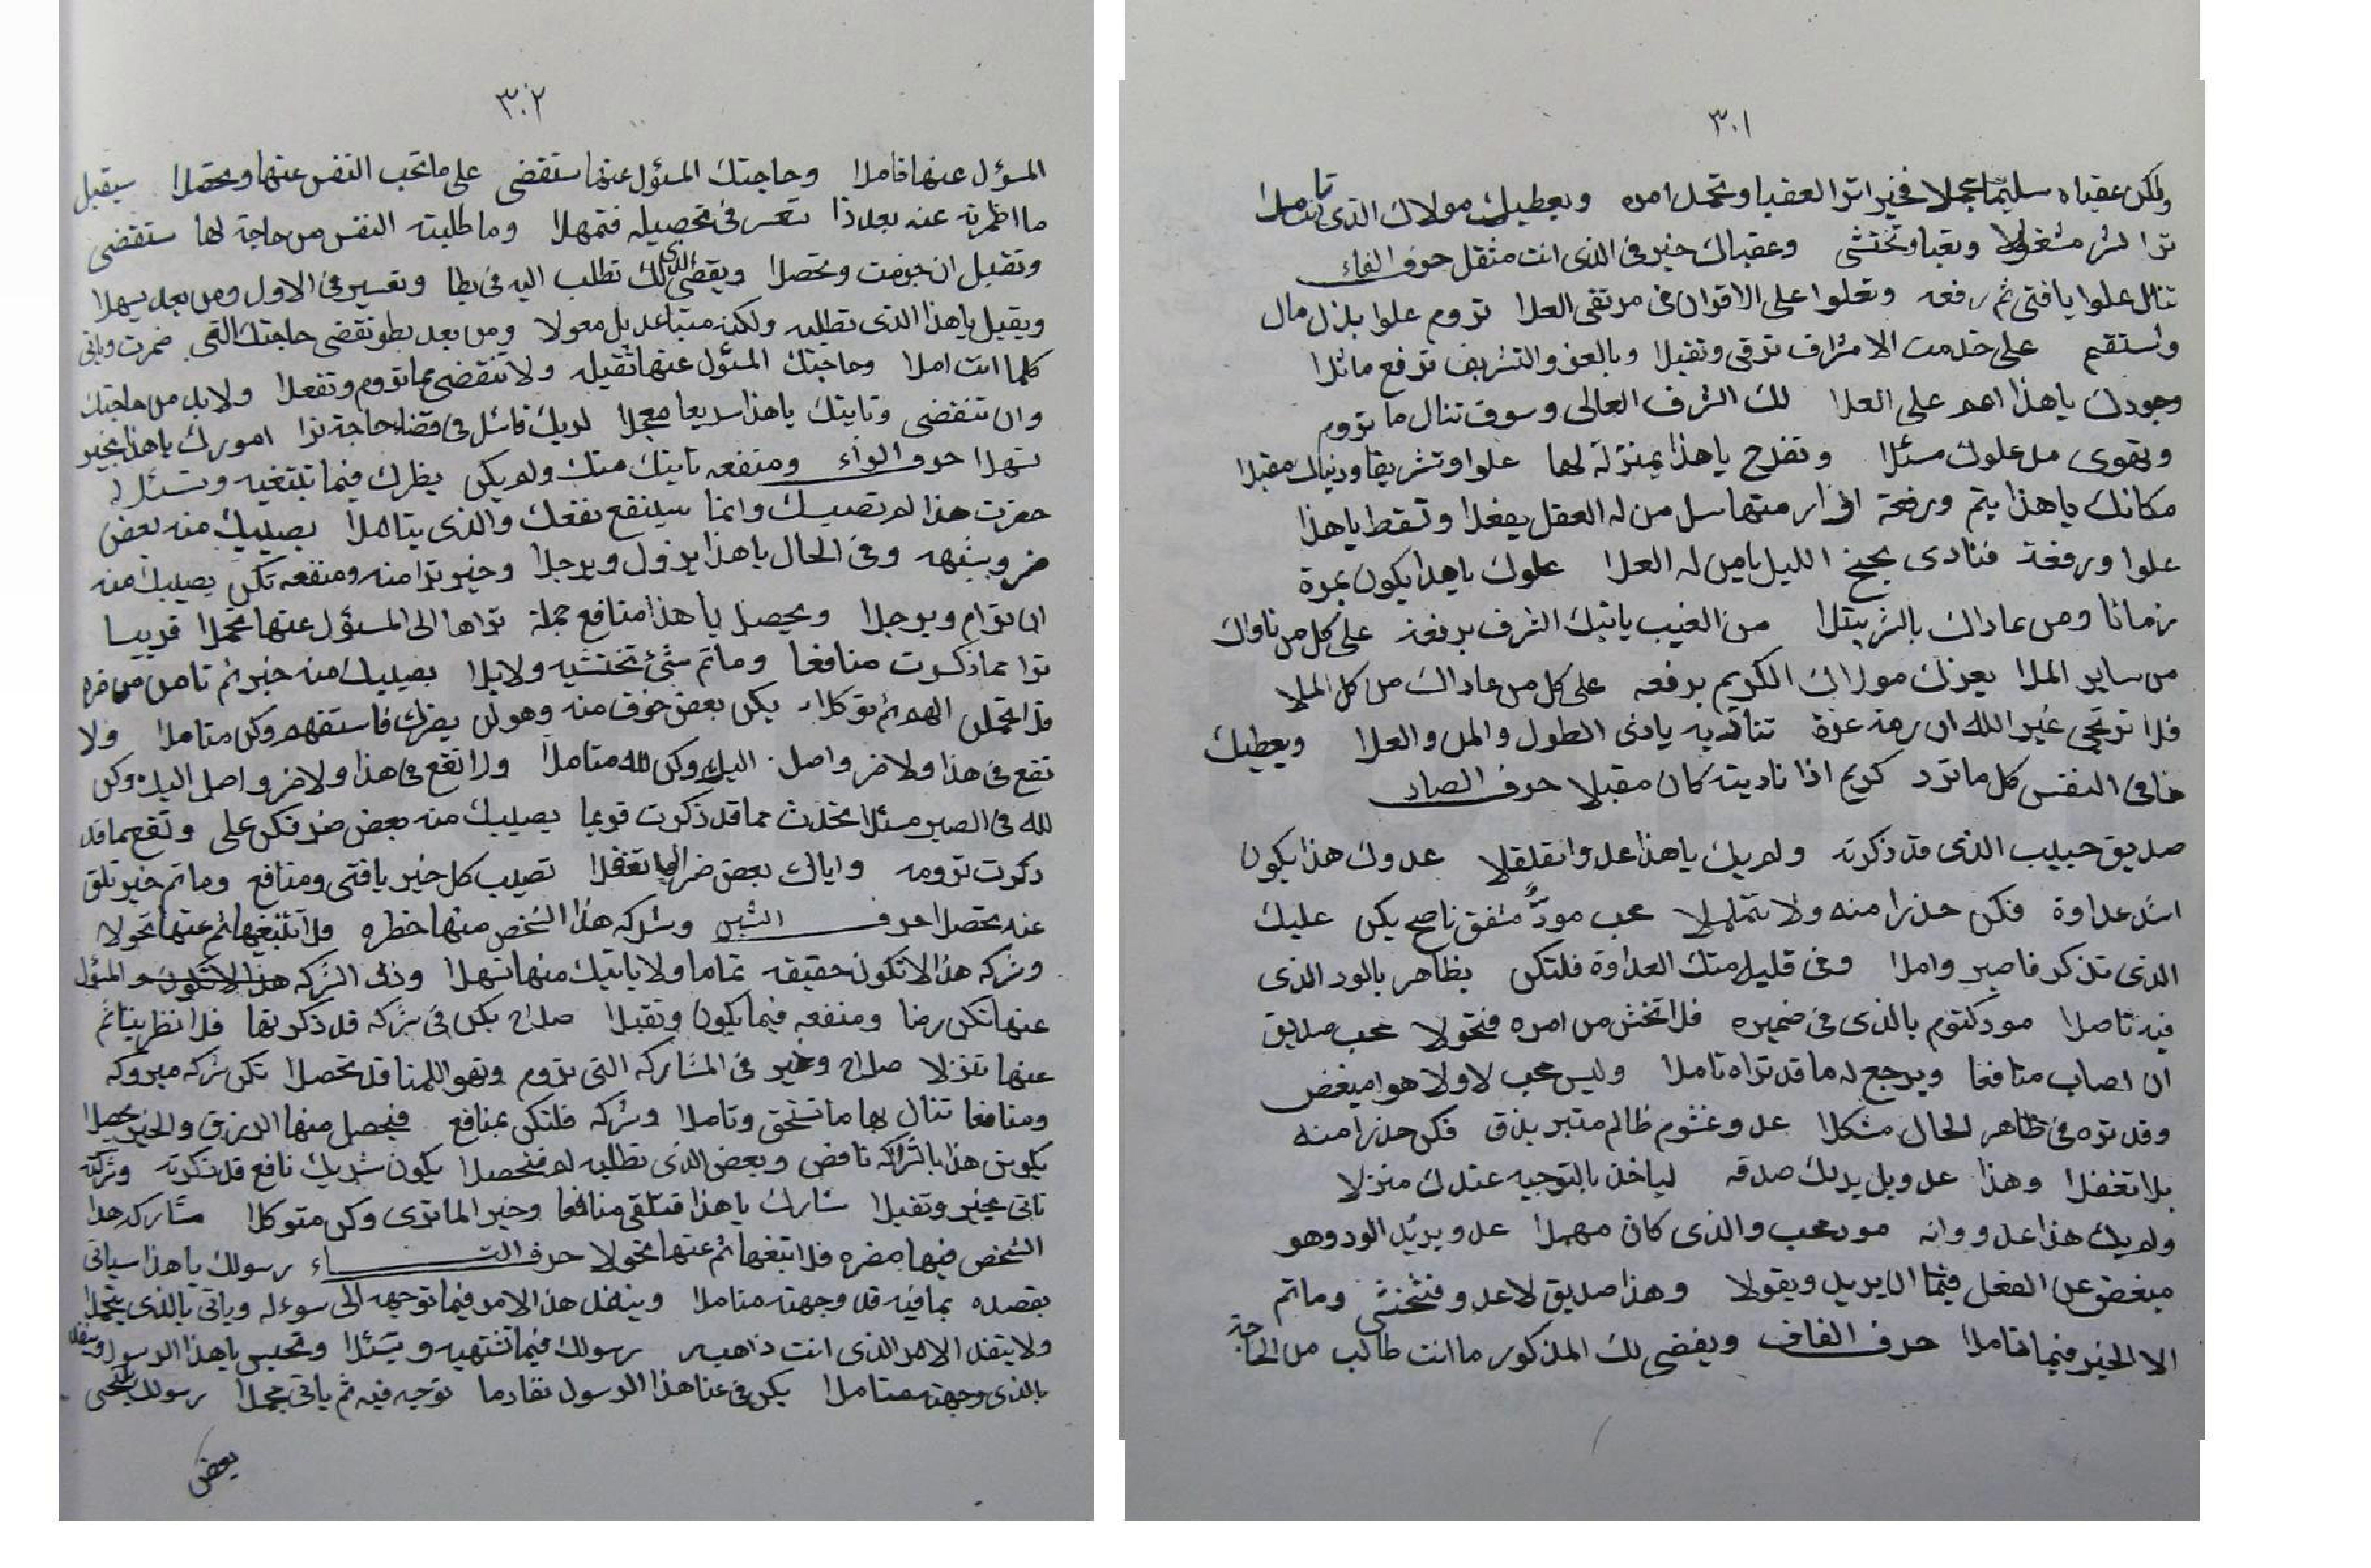 ٣٠١
ولكن عقباه سليما تجملا فخير اترا العقبا وتحمل امره ويعطيك مولاك الذى تاملا
ترا لشر مشغولا وبقيا وتختشى وعقباك خير فى الذى انت مثقل حرف الفاء
تنال علوا يا فتى ثم رفعه وتعلوا على الاقوان فى مرتقى العلا تروم علوا بذل مال
وتستقيم على خدمت الاشراف ترقى وتقبلا وبالعز والتشريف ترفع مائلا
وجودك يا هذا اهم على العلا لك الشرف العالى وسوف تنال ما تروم
وتقوى من علوك مسئلا وتفرح يا هذا بمنزلة لها علوا وتشريفا ودنياك مقبلا
مكانك يا هذا يتم ورفعة منتها سل من له العقل يفعلا وتسقط يا هذا
علوا ورفعة فنادى بجنح الليل يا من له العلا علوك يا هذا يكون بمرة
زمانا ومن عاداك بالشر يبتلا من الغيب ياتيك الشرف برفعة على كل من ناواك
من ساير الملا يعزك مولاك الكريم برفعه على كل من عاداك من كل الملا
فلا ترتجى غير الله ان رمة عزة تناديه يا ذى الطول والمن والعلا ويعطيك
خافى النفس كل ما ترد كريم اذا ناديته كان مقبلا حرف الصاد
صديق حبيب الذى قد ذكرته ولم يك يا هذا عدوا تقلقلا عدوك هذا يكون
اشد عداوة فكن حذرا منه ولا تتململا محب مودٌ مشفق ناصح يكن عليك
الذى تذكر فاصبر واملا وفى قليل منك العداوة فلتكن يظاهر بالود الذى
فيه تاصلا مود كتوم بالذى فى ضميره فلا تخش من امره فتحولا محب صديق
ان اصاب منافعا ويرجع له ما قد تراه تاملا وليس محب لاولا هوا مبغض
وقد تره فى ظاهر الحال مشكلا عدو غشوم ظالم متبر بذق فكن حذرا منه
بلا تغفلا وهذا عدو بل يريك صدقه لياخذ بالتوجيه عندك منزلا
ولم يك هذا عدو وانه مود محب والذى كان مهملا عدو يريك الود وهو
مبغض عن الفعل فيما ان يريد ويقولا وهذا صديق لا عدو فتختشى وماتم
الا الخير فيما تاملا حرف القاف ويقضى لك المذكور ما انت طالب من الحاجة
٣٠٢
المسؤل عنها فاملا وحاجتك المسؤل عنها ستقضى على ما تحب النفس عنها ومحتملا سيقبل
ما اظمرته عنه بعد ذا تعسر فى تحصيله فتمهلا وما طلبته النفس من حاجة لها ستقضى
وتقبل ان جوفت وتحصلا ويقضى لك الذى تطلب اليه فى بطا وتعسير فى الاول ومن بعد يسهلا
ويقبل يا هذا الذى تطلبه ولكنه متباعد بل معولا ومن بعد بطو تقضى حاجتك التى ضمرت وياتى
كلما انت املا وحاجتك المسئول عنها ثقيله ولا تنقضى بما تروم وتفعلا ولا بد من حاجتك
وان تنقضى وتايتك يا هذا سريعا معجلا لديك قائل فى قضاء حاجة ترا امورك يا هذا بخير
تسهلا حرف الراء ومنفعه تايتك منك ولم يكن يظرك فيما تبتغيه وتسئل له
حضرت هذا لم تصيبك وانما سينفع نفعك والذى يتاملا يصيبك منه بعض
ضر ويشبه وفى الحال يا هذا يزول ويرجلا وخير ترا منه ومنفعه تكن يصيبك منه
ان ترام ويرجلا ويحصل يا هذا منافع جملة تراها الى المسئول عنها تحملا قريبا
ترا مما ذكرت منافعا وماتم شئ تختشيه ولا بلا يصيبك منه خير ثم تامن من ضره
فلا تحملن الهم ثم توكلا يكن بعض خوف منه وهو لن يضرك فاستفهم وكن متاملا ولا
تقع فى هذا ولا ضر واصل اليك وكن لله متاملا ولا تقع فى هذا ولا ضر واصل اليك وكن
لله فى الصبر مسئلا تحدث مما قد ذكرت قريبا يصيبك منه بعض ضر فكن على وتقع مما قد
ذكرت ترومه واياك بعض ضر لما تغفلا تصيب كل خير يا فتى ومنافع وماتم خير تلق
عنه تحصلا حرف الشين وشركه هذا الشخص منها خطره فلا تبتغيها ثم عنها تحولا
وشركه هذا لا تكون حقيقه تماما ولا ياتيك منها تسهلا وذى الشركه هذا لا تكون والمسؤل
عنها تكن رضا ومنفعه فيما يكون وتقبلا صلاح يكن فى شركه قد ذكرتها فلا تظر بينا ثم
عنها تنزلا صلاح وخير فى المشاركه التى تروم وتهوا للمنا قد تحصلا تكن شركه مبروكه
ومنافعا تنال بها ما تستحق وتاملا وشركه فلتكن بمنافع فيحصل منها الرزق والخير يحصلا
يكون هذا بالشراكه ناقص وبعض الذى تطلبه لم فتحصلا يكون شريك نافع قد ذكرته وشركته
تاتى بخير وتقبلا شارك يا هذا فتلقى منافعا وخير لما ترى وكن متوكلا مشاركه هذا
الشخص فيها مضره فلا تبتغها ثم عنها تحولا حرف التاء رسولك يا هذا سياتى
بقصده بما فيه قد وجهته متاملا وينفذ هذا الامر فيما توجهه الى سوءله وياتى بالذى يتجملا
ولا ينفذ الامر الذى انت ذاهب رسولك فيما تشتهيه ويسئلا وتحبس يا هذا الرسول
بالذى وجهته متاملا يكن فى عنا هذا الرسول تقادما توجه فيه ثم ياتى مجملا رسولك يختشى
بعض